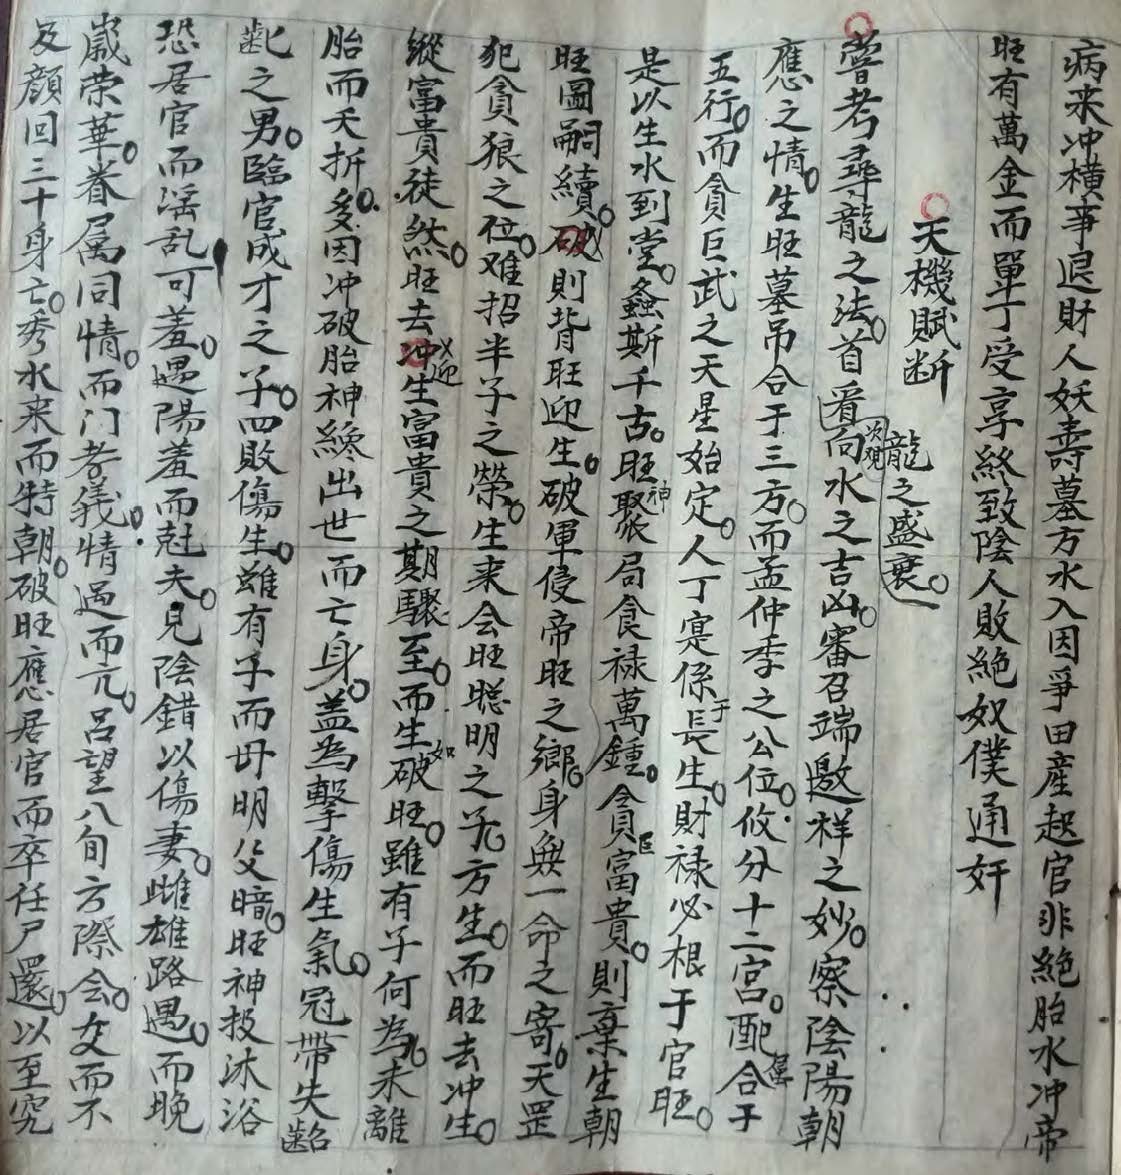 病来冲橫事退財人妖壽墓方水入因爭田產起官非絕胎水冲帝
旺有萬金而單丁受享終致陰人敗絕奴僕通奸
天機賦断
龍之盛衰
嘗考尋龍之法首看向水之吉凶審召端邀祥之妙察陰陽朝
次观
應之情生旺墓吊合于三方而孟仲季之公位攸分十二宮配合于
五行而貪巨武之天星始定人丁寔係長生財禄必根于官旺
于
是以生水到堂螽斯千古旺聚局食禄萬鍾貪富貴則棄生朝
神
巨
旺圖嗣續破則背旺迎生破軍侵帝旺之鄉身無一命之寄天罡
犯貪狼之位难招半子之榮生来会旺聪明之子方生而旺去冲生
縱富貴徒然旺去冲生富貴之期驟至而生破旺雖有子何為未離
迎
如
胎而夭折多因冲破胎神纔出世而亡身盖為擊傷生氣冠帶失齠
齔之男臨官成才之子四敗傷生雖有子而毋明父暗旺神投沐浴
恐居官而淫乱可羞遇陽羞而尅夫見陰錯以傷妻雌雄路遇而晚
歲荣華眷属同情而门孝義情過而亢吕望八旬方際会交而不
及顔回三十身亡秀水来而特朝破旺應居官而卒任尸還以至究